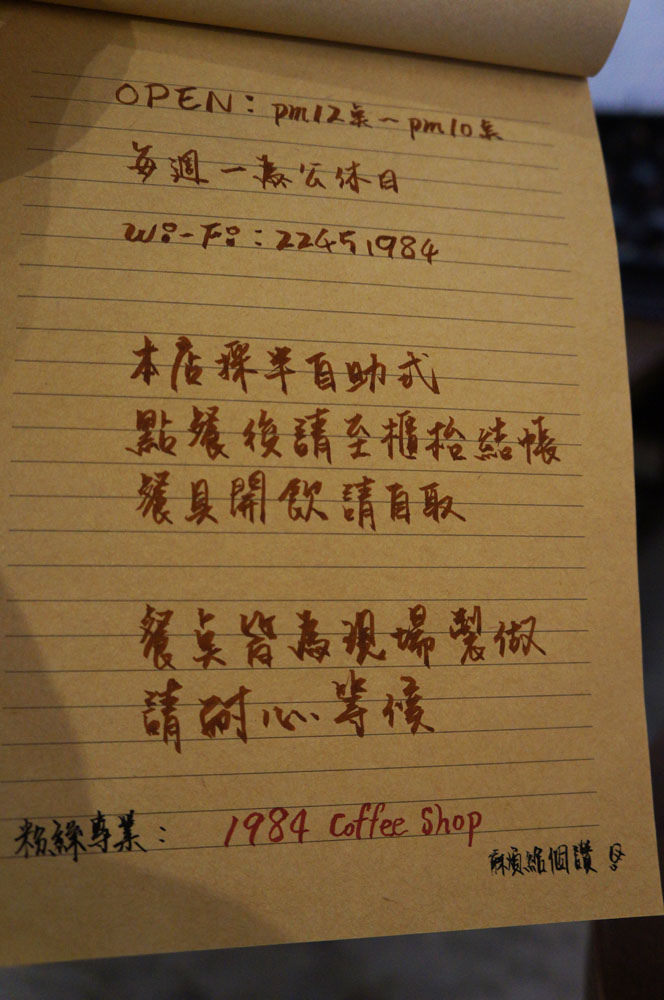 OPEN：pm12點～pm10點
每週一為公休日
Wi-Fi：22451984
本店採半自助式
點餐後請至櫃枱結帳
餐具開飲請自取
餐點皆為現場製做
請耐心等候
粉絲專業： 1984 Coffee Shop
麻煩給個讚